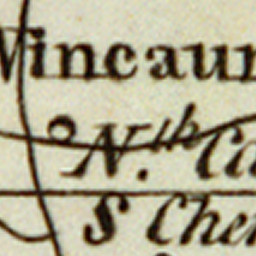 Wincaun
N.th Ca
S Cher